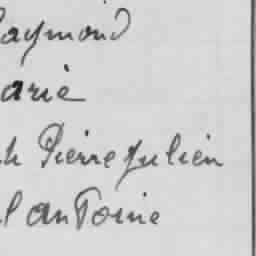 Raymond
arie
h Pierre Julien
l anToine